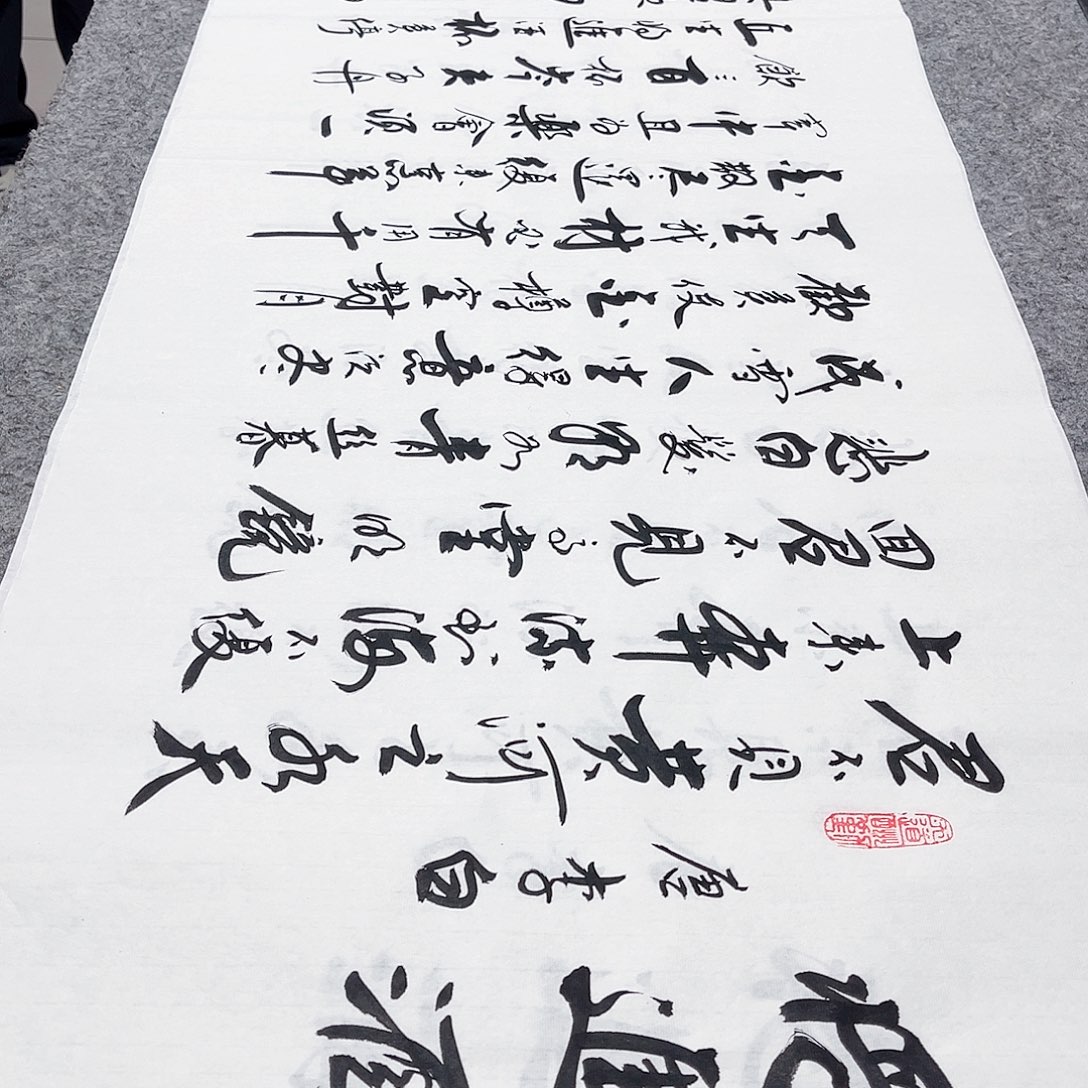 將進酒
唐李白
君不見黃河之水天
上來奔流到海不復
回君不見高堂明鏡
悲白髮朝如青絲暮
成雪人生得意須尽
歡莫使金樽空對月
天生我材必有用千
金散尽還復來烹羊
宰牛且為樂會須一
飲三百杯岑夫子丹
丘生將進酒杯莫停